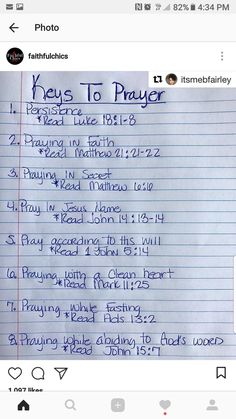 82% 4:34 PM
Photo
faithfulchics
itsmebfairley
Keys To Prayer
1. Persistence
*Read Luke 18:1-8
2. Praying in Faith
*Read Matthew 21:21-22
3. Praying in Secret
*Read Matthew 6:6
4. Pray in Jesus Name
*Read John 14:13-14
5. Pray according to His will
*Read 1 John 5:14
6. Praying with a clean heart
*Read Mark 11:25
7. Praying while fasting
*Read Acts 13:2
8. Praying while abiding to God's word
*Read John 15:7
1,097 likes